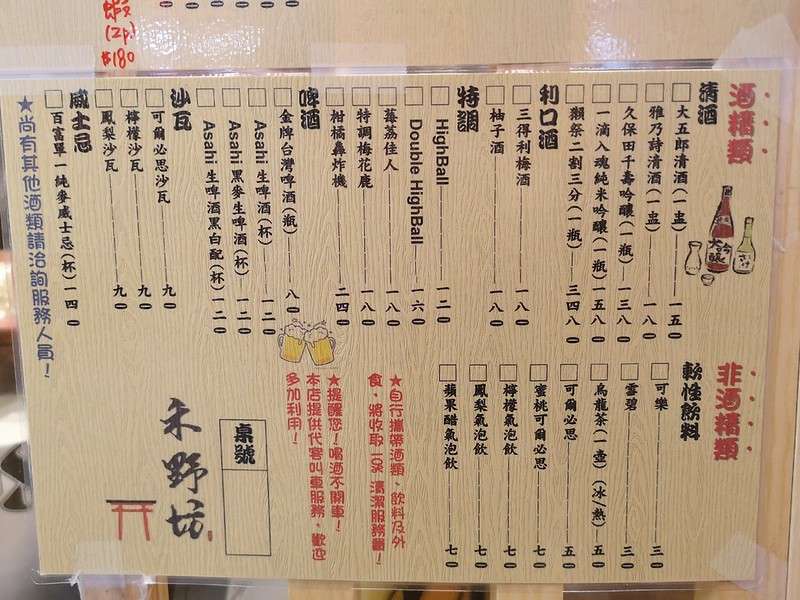 蝦
(2p)
$180
酒精類
清酒
大五郎清酒(一盅) 一五0
雅乃詩清酒(一盅) 一八0
久保田千壽吟釀(一瓶) 一三八0
一滴入魂純米吟釀(一瓶) 一五八0
獺祭二割三分(一瓶) 三四八0
利口酒
三得利梅酒 一八0
柚子酒 一八0
特調
HighBall 一二0
Double HighBall 一六0
莓荔佳人 一八0
特調梅花鹿 一八0
柑橘轟炸機 二四0
啤酒
金牌台灣啤酒(瓶) 八0
Asahi 生啤酒(杯) 一二0
Asahi 黑麥生啤酒(杯) 一二0
Asahi 生啤酒黑白配(杯) 一二0
沙瓦
可爾必思沙瓦 九0
檸檬沙瓦 九0
鳳梨沙瓦 九0
威士忌
百富單一純麥威士忌(杯) 一四0
★尚有其他酒類請洽詢服務人員!
大吟釀
非酒精類
軟性飲料
可樂 三0
雪碧 三0
烏龍茶(一壺)(冰/熱) 五0
可爾必思 五0
蜜桃可爾必思 七0
檸檬氣泡飲 七0
鳳梨氣泡飲 七0
蘋果醋氣泡飲 七0
★自行攜帶酒類、飲料及外
食、將收取一桌 清潔服務費!
★提醒您!喝酒不開車!
本店提供代客叫車服務,歡迎
多加利用!
桌號
禾野坊